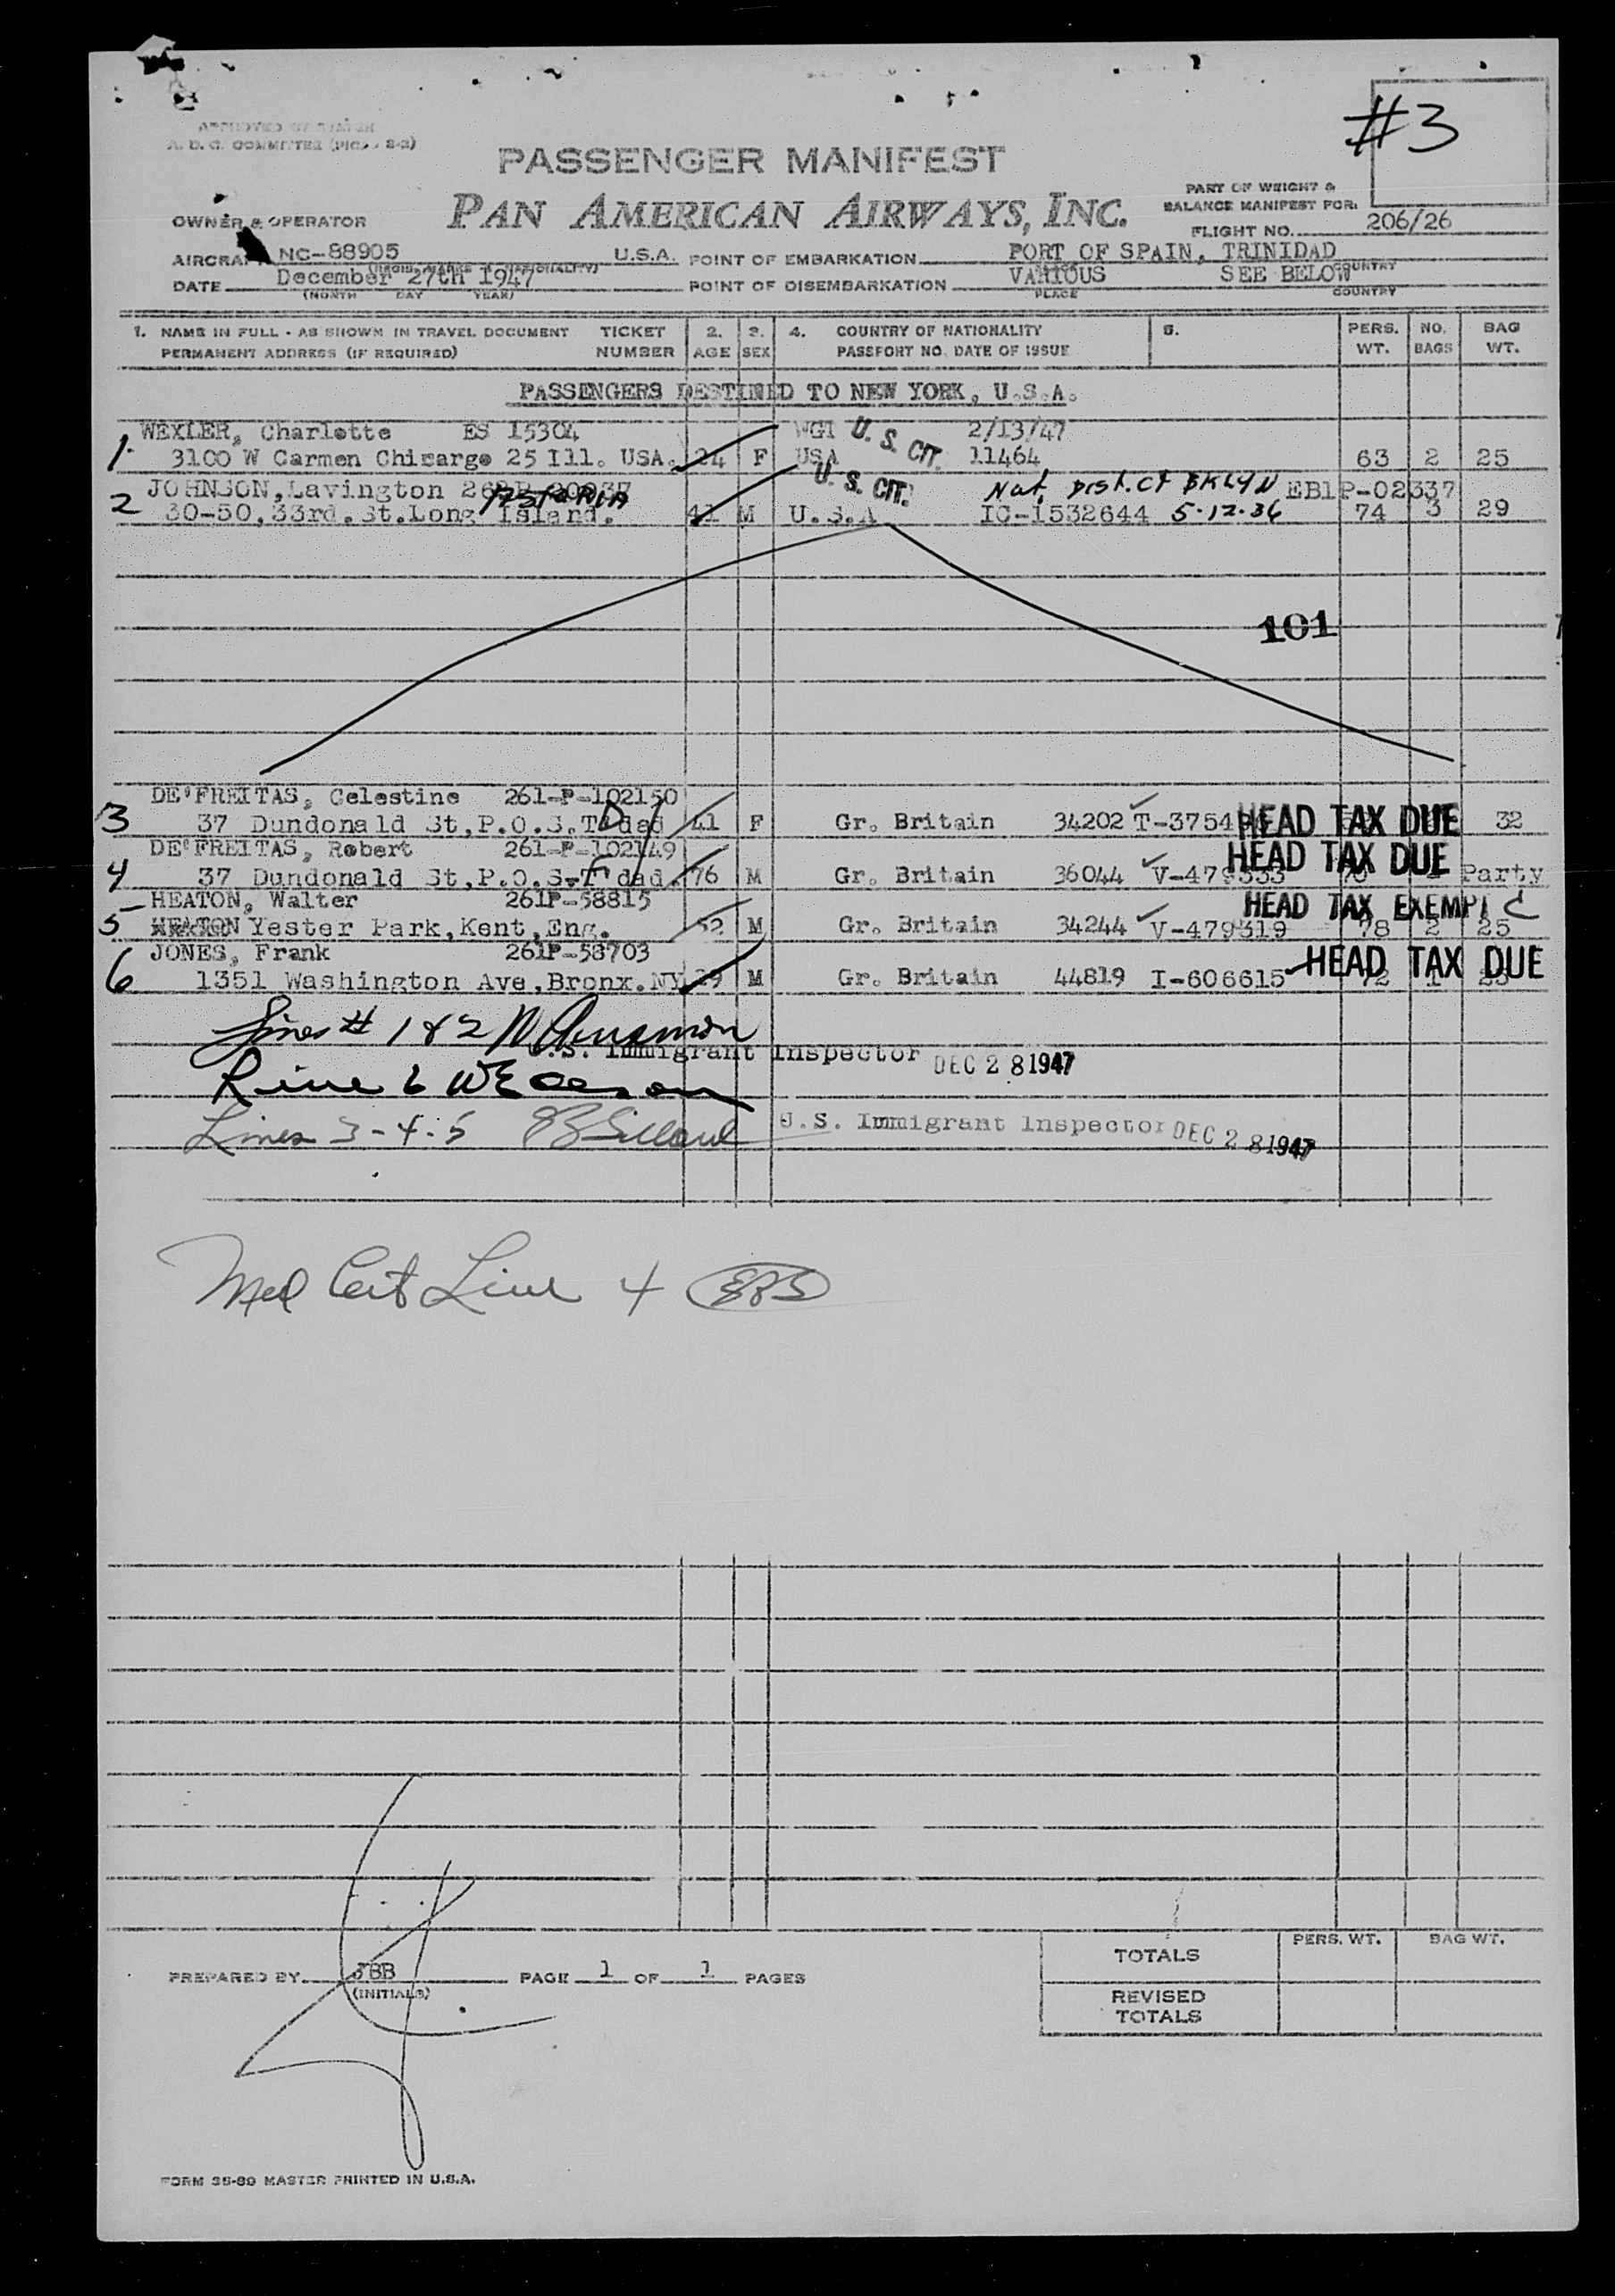 #3
A. D. C. COMMITTEE
PASSENGER MANIFEST
PAN AMERICAN AIRWAYS, INC.
PART OF WEIGHT &
BALANCE MANIFEST FOR:
FLIGHT NO. 206/26
OWNER & OPERATOR
AIRCRAFT NC-88905 U.S.A. POINT OF EMBARKATION PORT OF SPAIN, TRINIDAD
DATE December 27th 1947 POINT OF DISEMBARKATION VARIOUS SEE BELOW
(MONTH DAY YEAR) PLACE COUNTRY
1. NAME IN FULL - AS SHOWN IN TRAVEL DOCUMENT TICKET 2. 3. 4. COUNTRY OF NATIONALITY 5. PERS. NO. BAG
PERMANENT ADDRESS (IF REQUIRED) NUMBER AGE SEX PASSPORT NO. DATE OF ISSUE WT. BAGS WT.
PASSENGERS DESTINED TO NEW YORK, U.S.A.
WEXLER, Charlotte ES 15304 U. S. CIT. 2/13/47
1. 3100 W Carmen Chicargo 25 Ill. USA. 24 F USA 11464 63 2 25
JOHNSON, Lavington U. S. CIT. Nat. Dist. Ct BKLYN EB1P-02337
2 30-50, 33rd. St. Long Island. 41 M U.S.A IC-1532644 5-12-36 74 3 29
101
DE'FREITAS, Celestine 261-P-102150
3 37 Dundonald St, P.O.S. T'dad 41 F Gr. Britain 34202 HEAD TAX DUE 32
DE'FREITAS, Robert 261-P-102149
4 37 Dundonald St, P.O.S. T'dad. 76 M Gr. Britain 36044 V-479333 HEAD TAX DUE Party
HEATON, Walter 261P-58815 HEAD TAX EXEMPT C
5 Yester Park, Kent, Eng. 52 M Gr. Britain 34244 V-479319 78 2 25
JONES, Frank 261P-58703
6 1351 Washington Ave, Bronx. NY M Gr. Britain 44819 I-606615 HEAD TAX DUE
Lines # 1 & 2
U.S. Immigrant Inspector DEC 28 1947
Line 6
Lines 3-4-5 U.S. Immigrant Inspector DEC 28 1947
Med Cert Line 4
TOTALS PERS. WT. BAG WT.
PREPARED BY JBB PAGE 1 OF 1 PAGES
(INITIALS)
REVISED
TOTALS
FORM 35-89 MASTER PRINTED IN U.S.A.